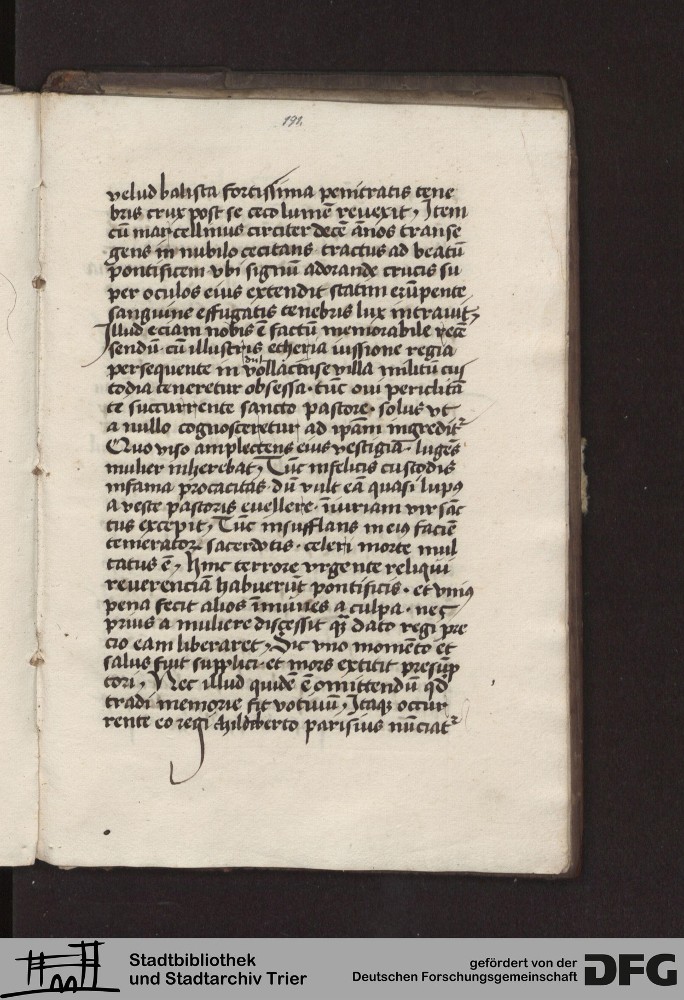 191.
velud balista fortissima penitratis tene
bris crux post se ceco lumē revexit, Item
cū marcellinus circiter decē ānos transe
gens in nubilo cecitans tractus ad beatū
pontificem vbi signū adorande crucis su
per oculos eius extendit statim erūpente
sanguine effugatis tenebris lux intrauit,
Illud eciam nobis ē factū memorabile recē
sendū · cū illustris etheria iussione regia
persequente in vollactinse villa militū cus
todia teneretur obsessa · tūc oui periclitā
te succurrente sancto pastore · solus vt
a nullo cognosceretur ad ip̄am ingredit᷑
Quo viso amplectens eius vestigia · lugēs
mulier inherebat, Tūc infelicis custodis
infama procacitas dū vult eā quasi lupꝰ
a veste pastoris euellere · īiuriam vir sāc
tus excepit, Tūc insufflans in eiꝰ faciē
temeratoꝝ sacerdotis · celeri morte mul
tatus ē, hinc terrore vrgente reliqui
reuerenciā habuerūt pontificis · et vniꝰ
pena fecit alios īmunes a culpa · nec
prius a muliere discessit qꝫ dato regi pre
cio eam liberaret, Sic vno momēto et
salus fuit supplici · et mors extitit presūp
tori, Nec illud quidē ē omittendū qd̄
tradi memorie fit votiuū, Itaqꝫ occur
rente eo regi childeberto parisius nūciat᷑
Stadtbibliothek
und Stadtarchiv Trier
gefördert von der
Deutschen Forschungsgemeinschaft
DFG